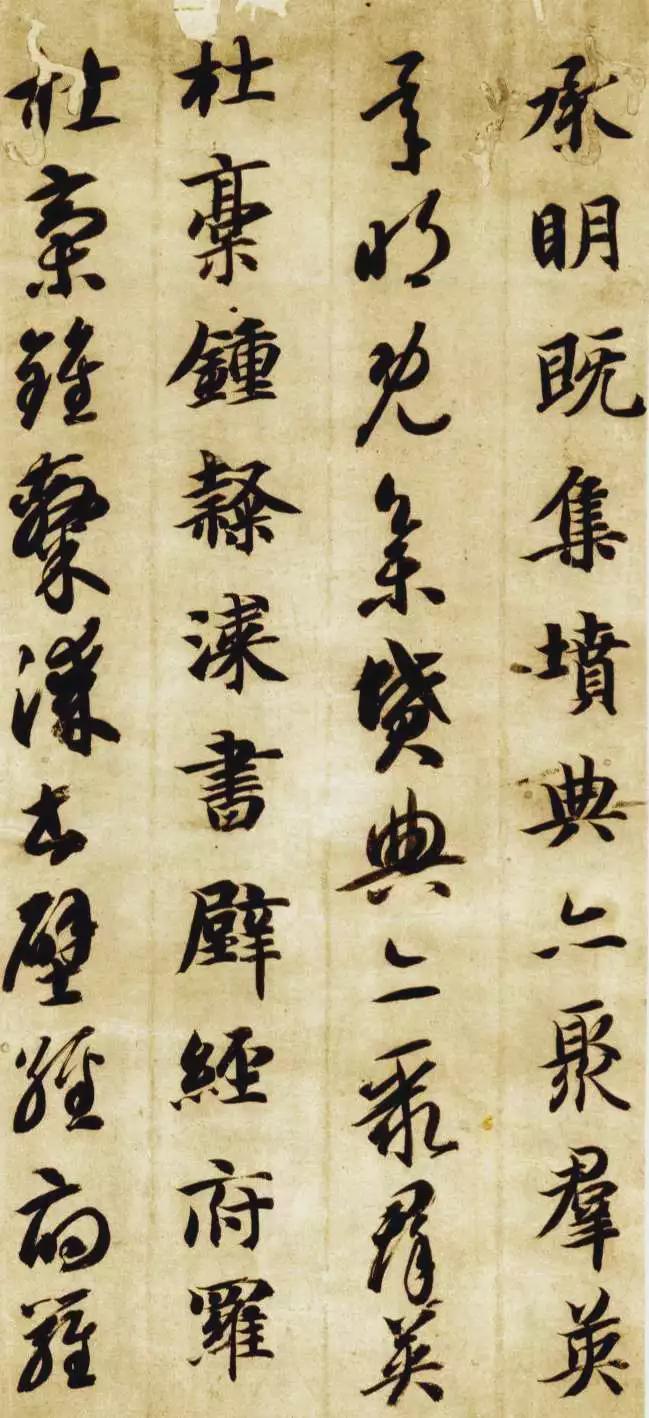 承明既集墳典亦聚羣英
承明既集墳典亦聚群英
杜稾鍾隸漆書壁經府羅
杜稾鍾隸漆書壁經府羅